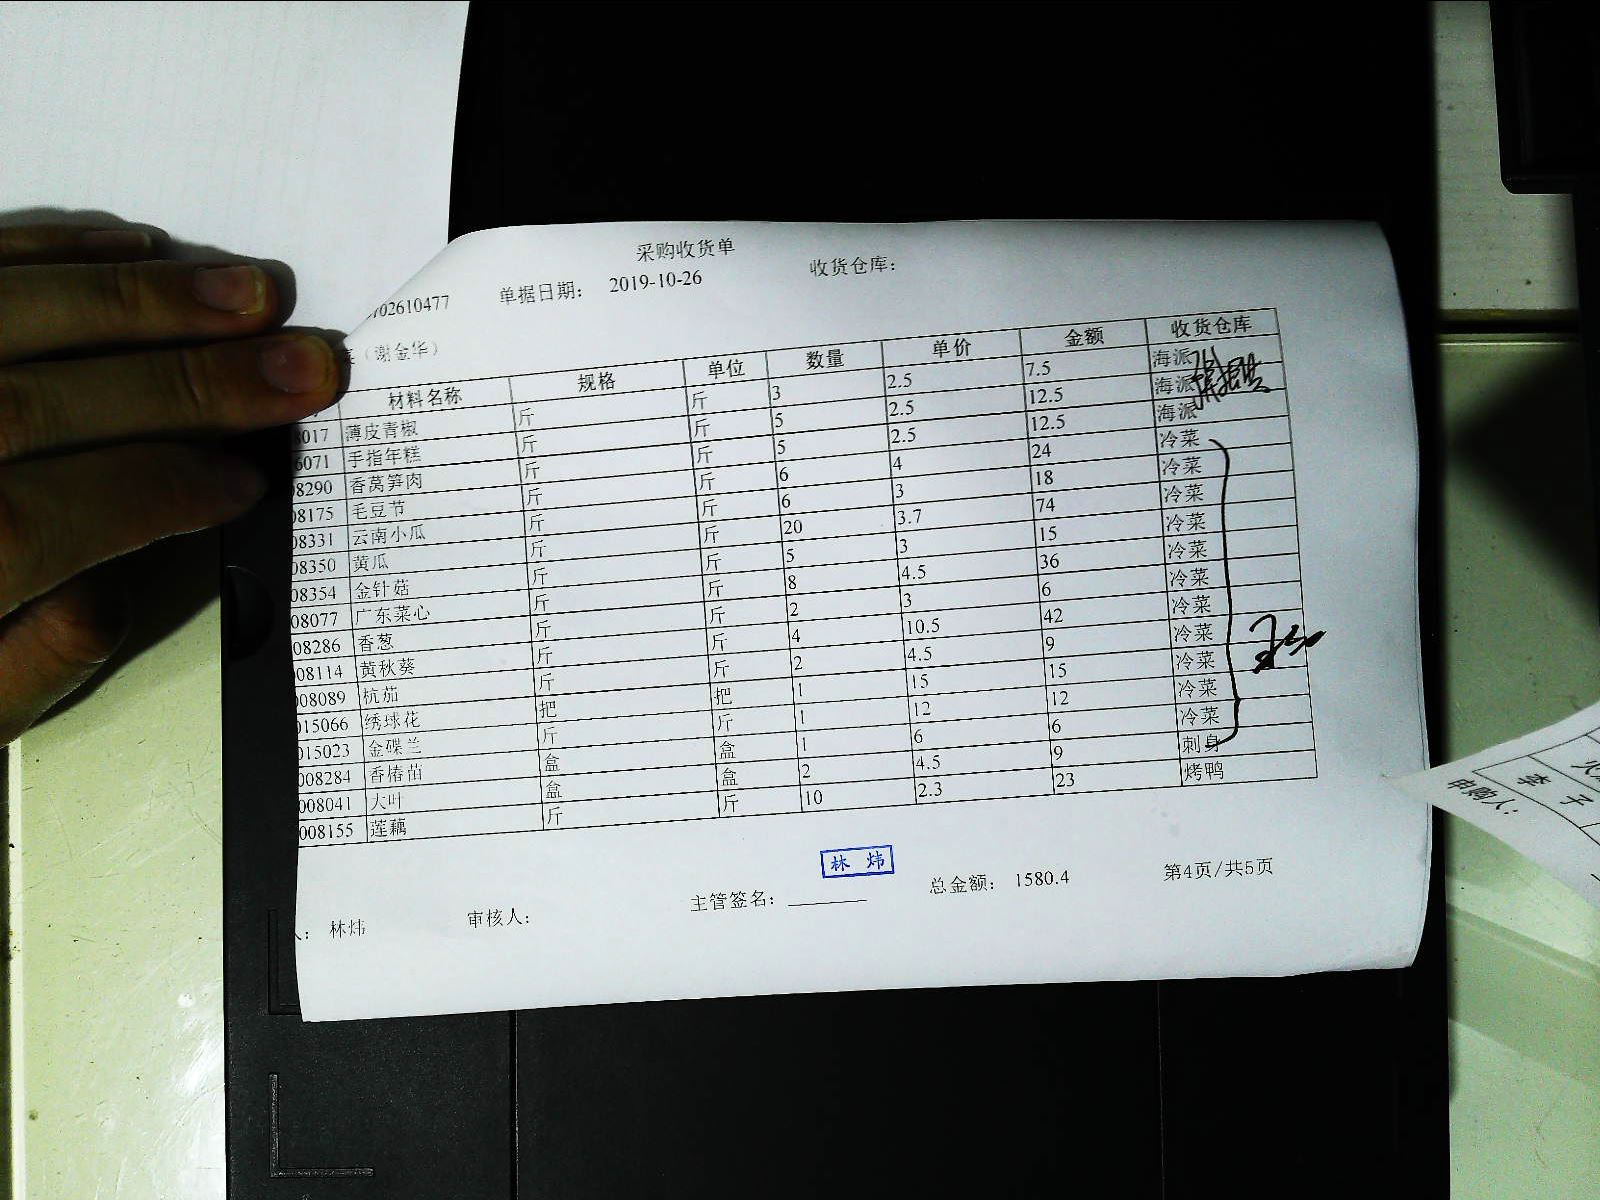 采购收货单
02610477 单据日期： 2019-10-26 收货仓库：
（谢金华）
材料名称 规格 单位 数量 单价 金额 收货仓库
8017 薄皮青椒 斤 斤 3 2.5 7.5 海派
6071 手指年糕 斤 斤 5 2.5 12.5 海派
08290 香莴笋肉 斤 斤 5 2.5 12.5 海派
08175 毛豆节 斤 斤 6 4 24 冷菜
08331 云南小瓜 斤 斤 6 3 18 冷菜
08350 黄瓜 斤 斤 20 3.7 74 冷菜
08354 金针菇 斤 斤 5 3 15 冷菜
08077 广东菜心 斤 斤 8 4.5 36 冷菜
08286 香葱 斤 斤 2 3 6 冷菜
08114 黄秋葵 斤 斤 4 10.5 42 冷菜
008089 杭茄 斤 斤 2 4.5 9 冷菜
015066 绣球花 把 把 1 15 15 冷菜
015023 金碟兰 斤 斤 1 12 12 冷菜
008284 香椿苗 盒 盒 1 6 6 冷菜
008041 大叶 盒 盒 2 4.5 9 刺身
008155 莲藕 斤 斤 10 2.3 23 烤鸭
林炜
人： 林炜 审核人： 主管签名： 总金额： 1580.4 第4页/共5页
李子
申购人：